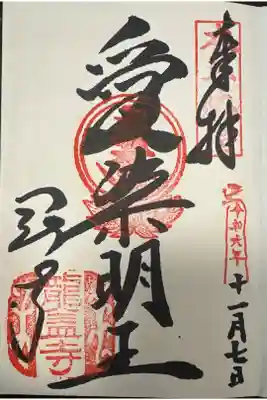 奉拝
令和六年 十一月七日
愛染明王
岡寺
龍蓋寺